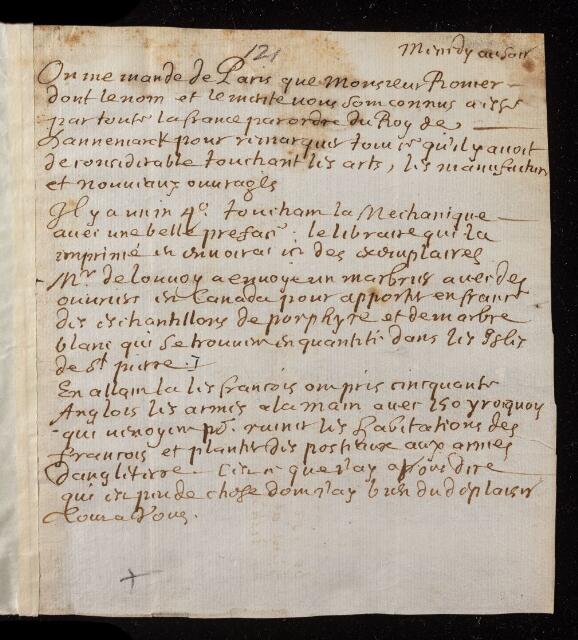 121
Mercredy au soir
On me mande de Paris que Monsieur Romer
dont le nom et le merite vous sont connus a esté
par toute la france par ordre du Roy de
Dannemarck pour remarquer tout ce qu'il y auoit
de considerable touchant les arts, les manufactures
et nouueaux ouurages
Il y a un in 4º. touchant la Mechanique
auec une belle preface : le libraire qui la
imprimé en enuoirai ici des exemplaires
Mr. de louuoy a enuoye un marbrier auec des
ouuriers en Canada pour apporter en france
des eschantillons de porphyre et de marbre
blanc qui se trouuent en quantité dans les Isles
de St pierre :
En allant la les francois ont pris cincquante
Anglois les armes a la main auec 150 yroquoy
qui uenoyent pr. ruiner les habitations des
francois et planter des posteaux aux armes
d'angleterre C'est ce que j'ay a vous dire
qui est peu de chose dont j'ay bien du deplaisir
Tout a Vous.